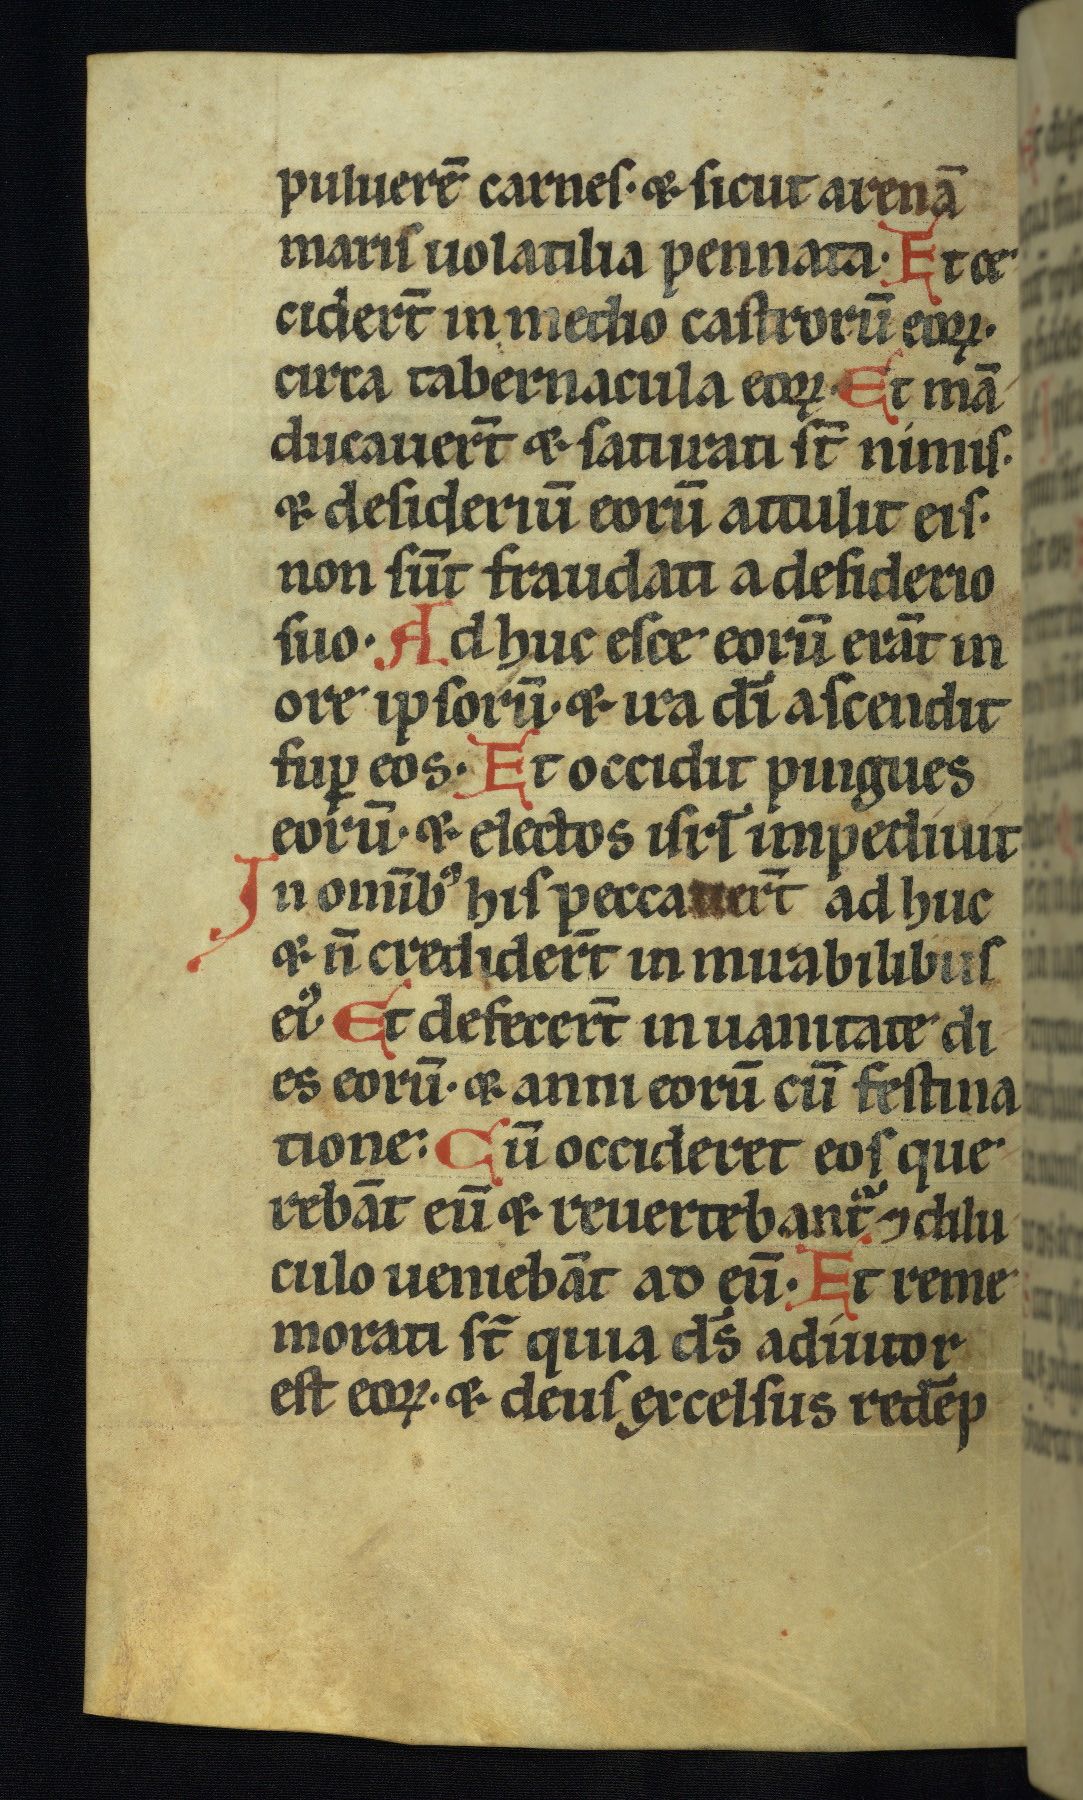 puluerē carnes· & sicut arenā
maris uolatilia pennata· Et ce
ciderт̄ in medio castrorū eoꝝ·
circa tabernacula eoꝝ· Et mā
ducauert̄ & saturati st̄ nimis·
& desideriū eorū attulit eis·
non sūt fraudati a desiderio
suo· Ad huc esce eorū erāt in
ore ipsorū· & ira dī ascendit
sup̱ eos· Et occidit pingues
eorū· & electos isrł impediuit
In omībꝰ his peccauert̄ ad huc
& n̄ crediderт̄ in mirabilibus
eiꝰ· Et defecert̄ in uanitate di
es eorū· & anni eorū cū festina
tione: Cū occideret eos que
rebāt eū & reuertebant᷑ ⁊ dilu
culo ueniebāt ad eū· Et reme
morati st̄ quia ds̄ adiutor
est eoꝝ· & deus excelsus redēp